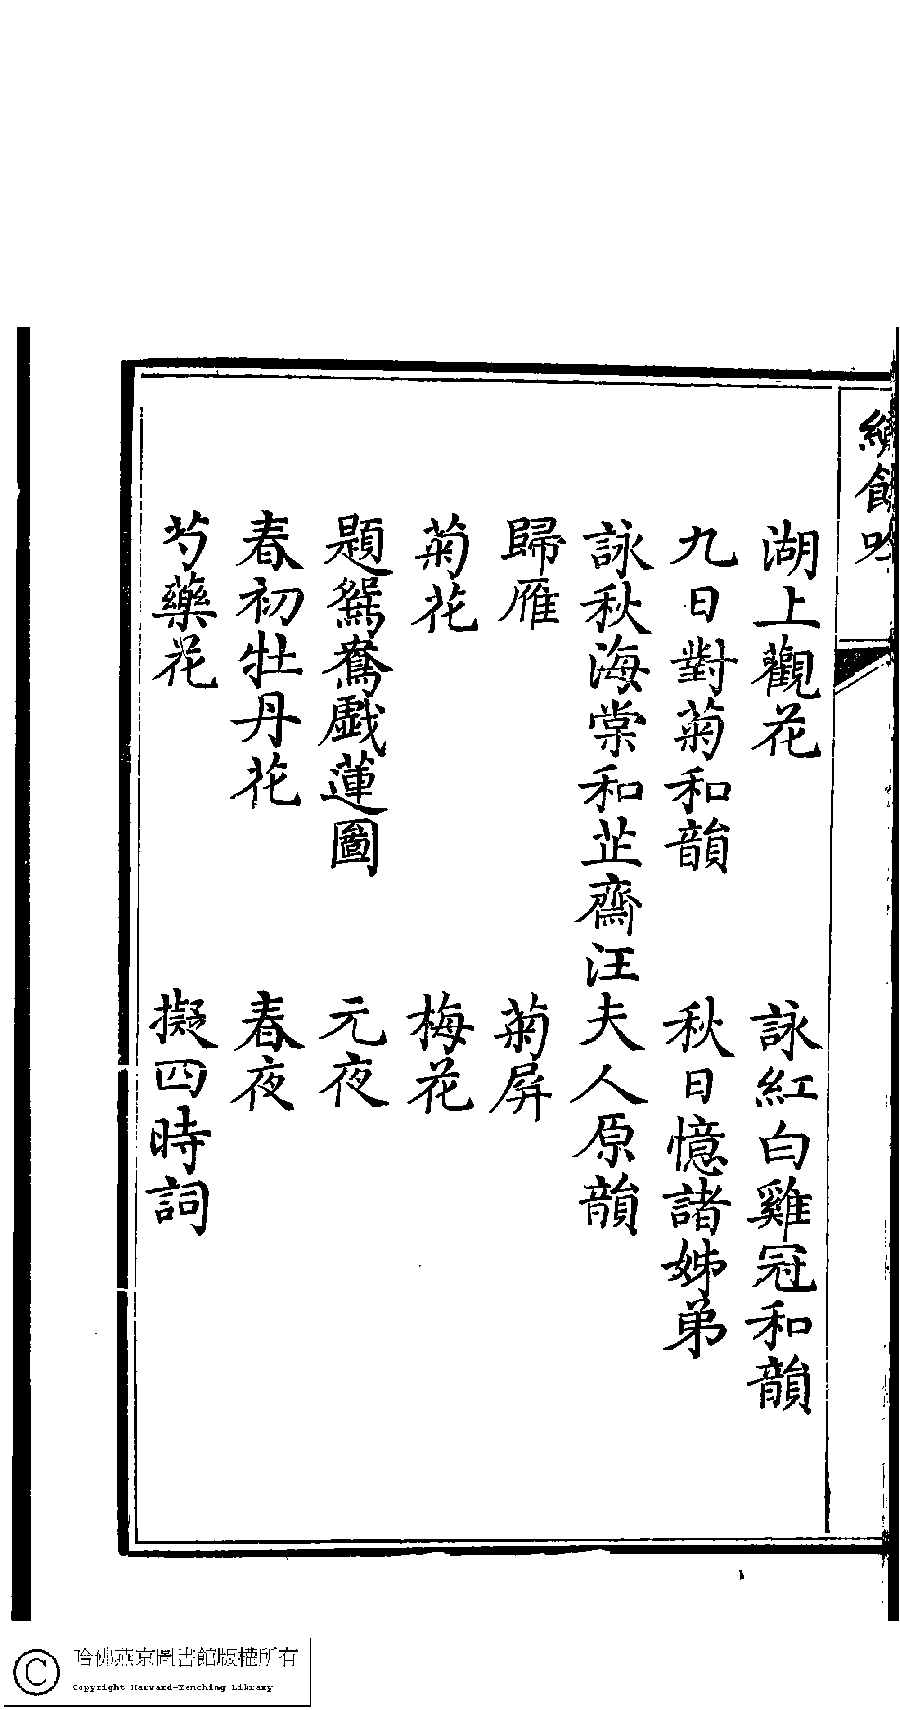 繡餘吟
湖上觀花　詠紅白雞冠和韻
九日對菊和韻　秋日憶諸姊弟
詠秋海棠和芷齋汪夫人原韻
歸雁　菊屏
菊花　梅花
題鴛鴦戲蓮圖　元夜
春初牡丹花　春夜
芍藥花　擬四時詞
哈佛燕京圖書館版權所有
Copyright Harvard-Yenching Library